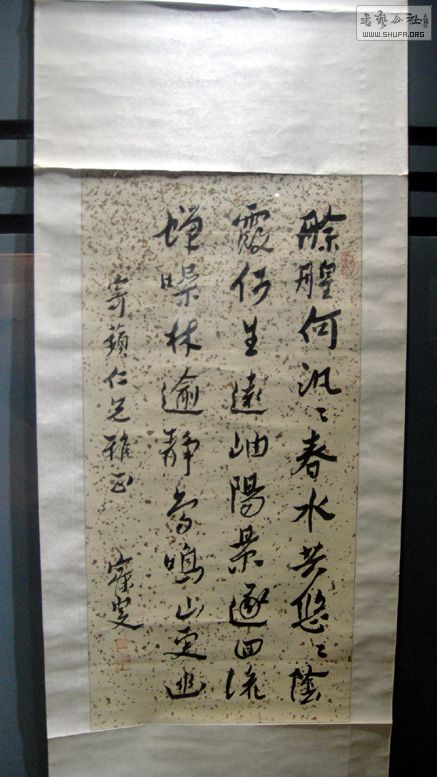 艅艎何汎〻春水共悠〻陰
霞生遠岫陽景逐回流
蟬噪林逾靜鳥鳴山更幽
寄蘋仁兄雅正
書藝公社
WWW.SHUFA.ORG